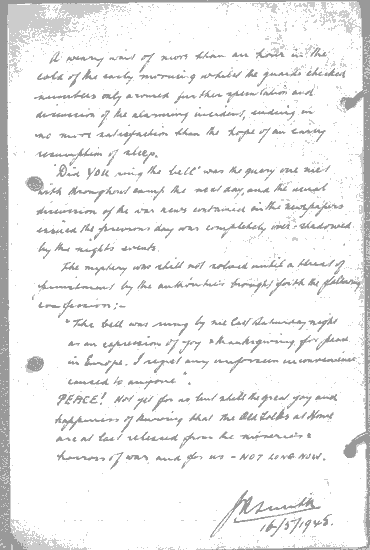 A weary wait of more than an hour in the
cold of the early morning whilst the guards checked
numbers only aroused further speculation and
discussion of the alarming incident, ending in
no more satisfaction than the hope of an early
resumption of sleep.
"Did YOU ring the bell" was the query one met
with throughout camp the next day, and the usual
discussion of the war news contained in the newspapers
issued the previous day was completely over-shadowed
by the night's events.
The mystery was still not solved until a threat of
punishment by the authorities brought forth the following
confession;-
"The bell was rung by me last Saturday night
as an expression of joy & thanksgiving for peace
in Europe. I regret any unforseen inconvenience
caused to anyone".
PEACE! Not yet for us but still the great joy and
happiness of knowing that the Old Folks at Home
are at last released from the miseries &
horrors of war, and for us - NOT LONG NOW.
Smith
16/5/1945.